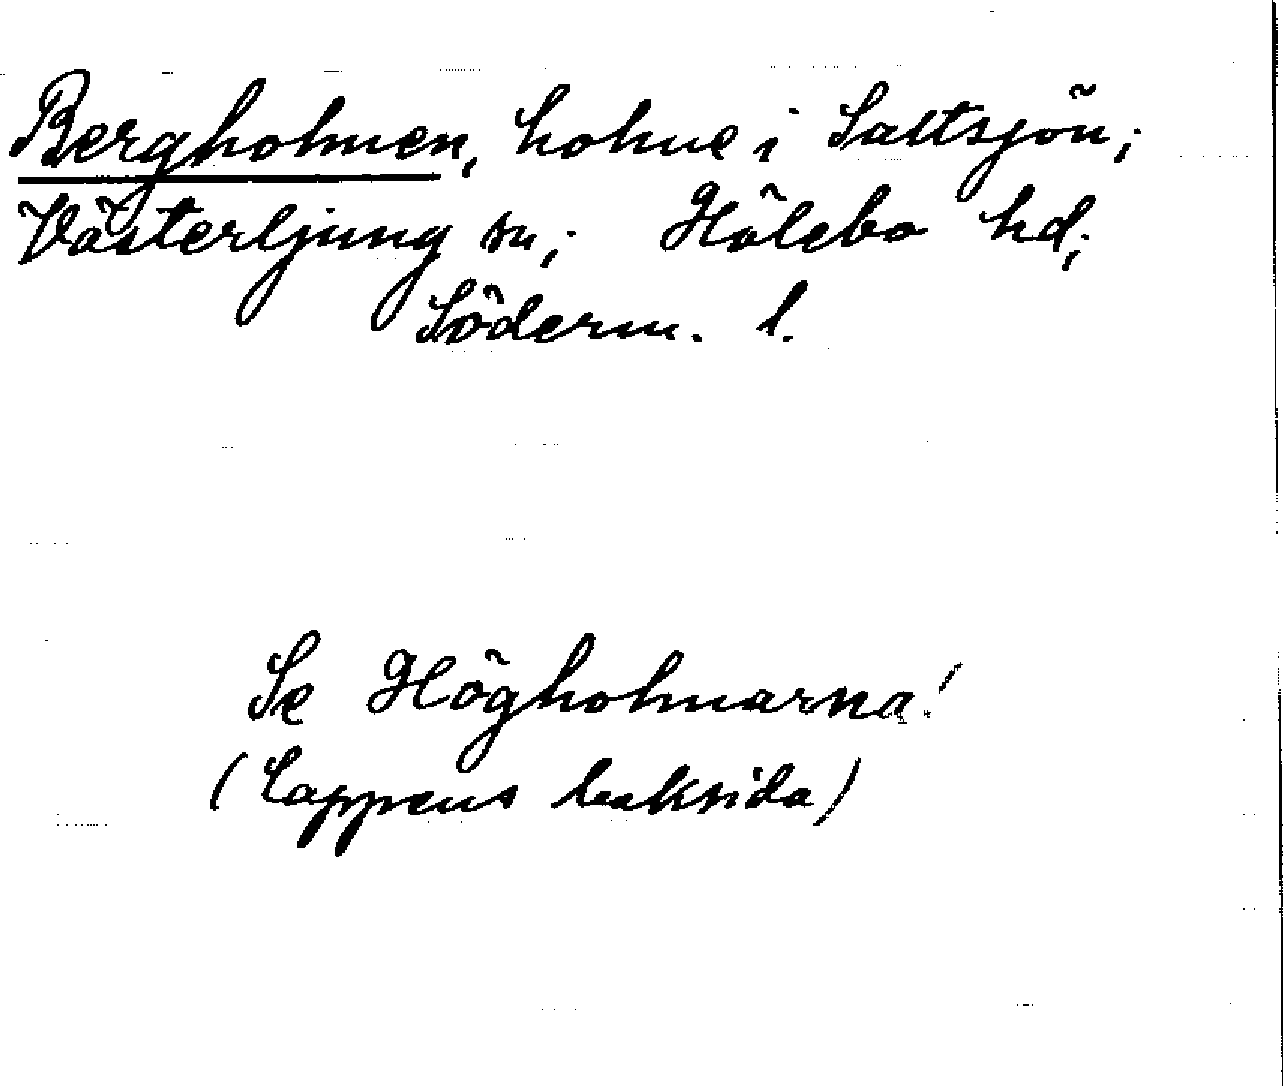 Bergholmen, holme i Saltsjön;
Västerljung sn; Hölebo hd;
Söderm. l.
Se Högholmarna!
(Lappens baksida)